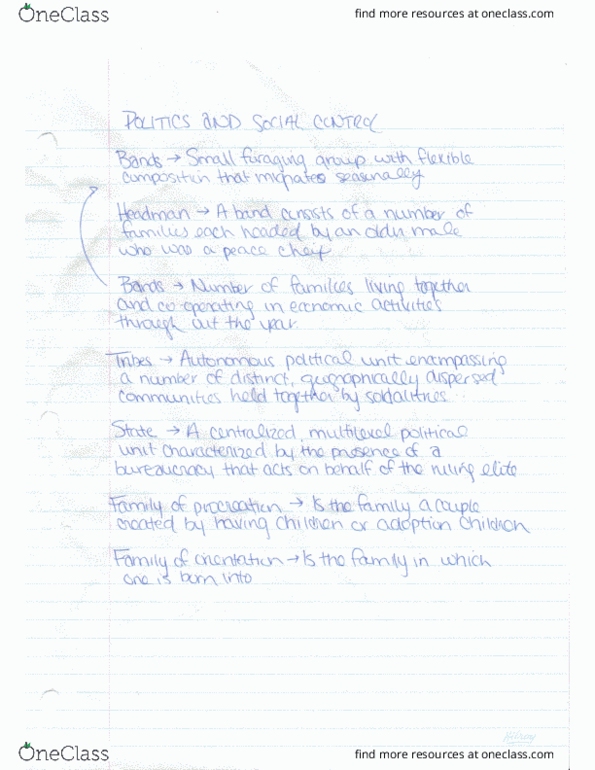 OneClass
find more resources at oneclass.com
POLITICS AND SOCIAL CONTROL
Bands → Small foraging group with flexible
composition that migrates seasonally
Headman → A band consists of a number of
families each headed by an older male
who was a peace cheif
Bands → Number of families living together
and co-operating in economic activities
through out the year.
Tribes → Autonomous political unit encompassing
a number of distinct, geographically dispersed
communities held together by sodalities
State → A centralized, multilevel political
unit characterized by the presence of a
bureaucracy that acts on behalf of the ruling elite
Family of procreation → Is the family a couple
created by having children or adoption children
Family of orientation → Is the family in which
one is born into
Hilroy
OneClass
find more resources at oneclass.com